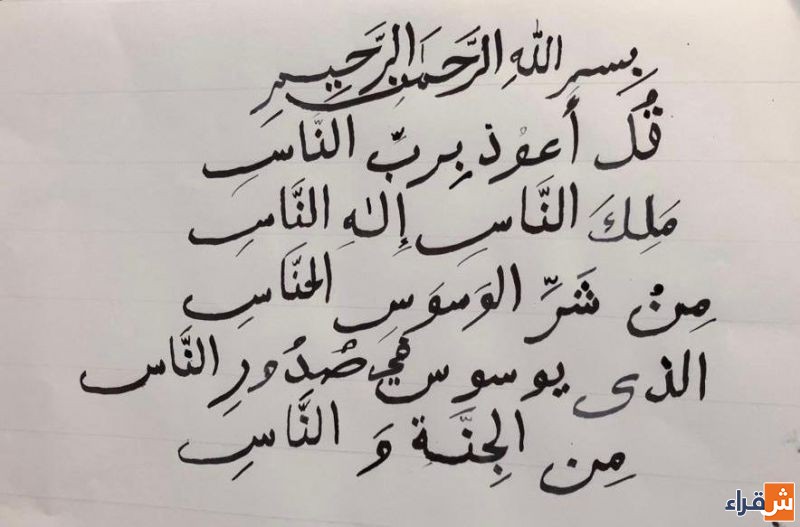 بِسمِ اللهِ الرَّحمَنِ الرَّحِيمِ
قُل أَعوْذ بِربِّ النَّاسِ
مَلِكَ النَّاسِ إِلٰهِ النَّاسِ
مِنْ شَرِّ الوَسوَسِ الخنَّاسِ
الذى يوسوس في صُدُورِ النَّاس
مِن الجِنَّة وَ النَّاسِ
شقراء